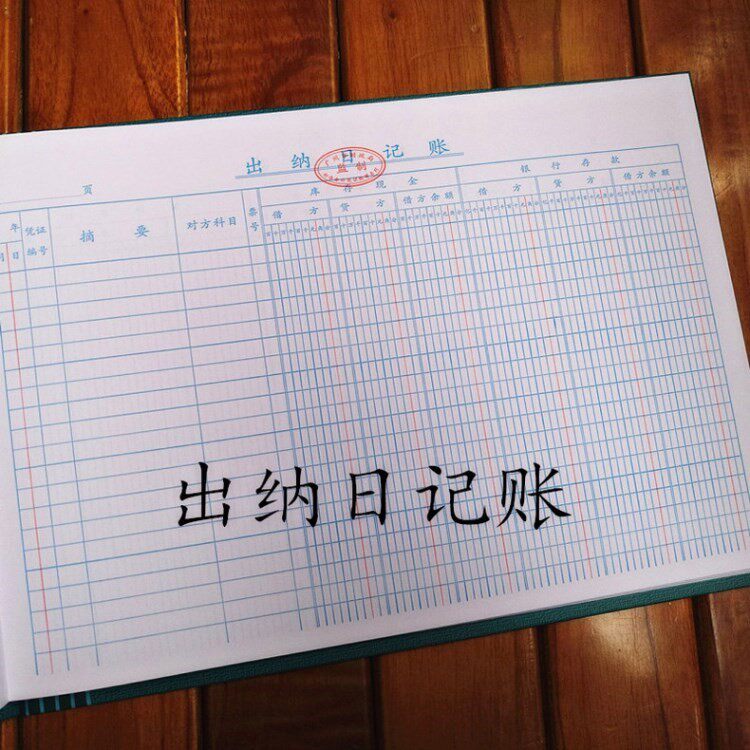 出纳日记账
监制
页
库存现金
银行存款
年
凭证
编号
摘要
对方科目
票号
借方
贷方
借方余额
借方
贷方
借方余额
日
出纳日记账